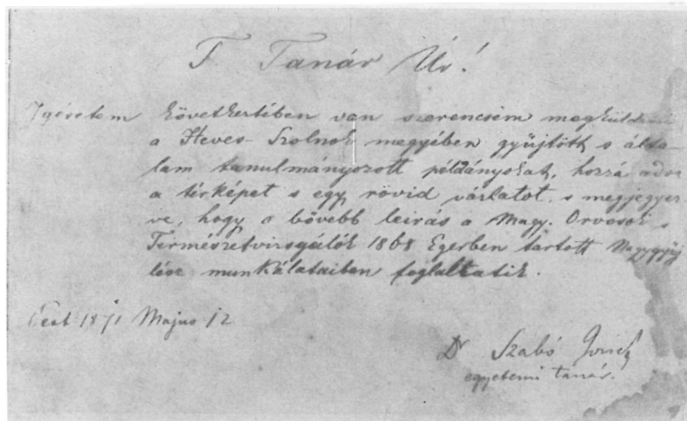 T. Tanár Úr!
Igéretem következtében van szerencsém megküldeni
a Heves-Szolnok megyében gyűjtött s álta-
lam tanulmányozott példányokat, hozzá adva
a térképet s egy rövid várlatot, s megjegyez-
ve, hogy a bővebb leirás a Magy. Orvosok s
Természetvizsgálók 1868 Egerben tartott Nagygyű
lése munkálataiben foglaltatik.
Pest 1871 Majus 12
Dr Szabó József
egyetemi tanár.